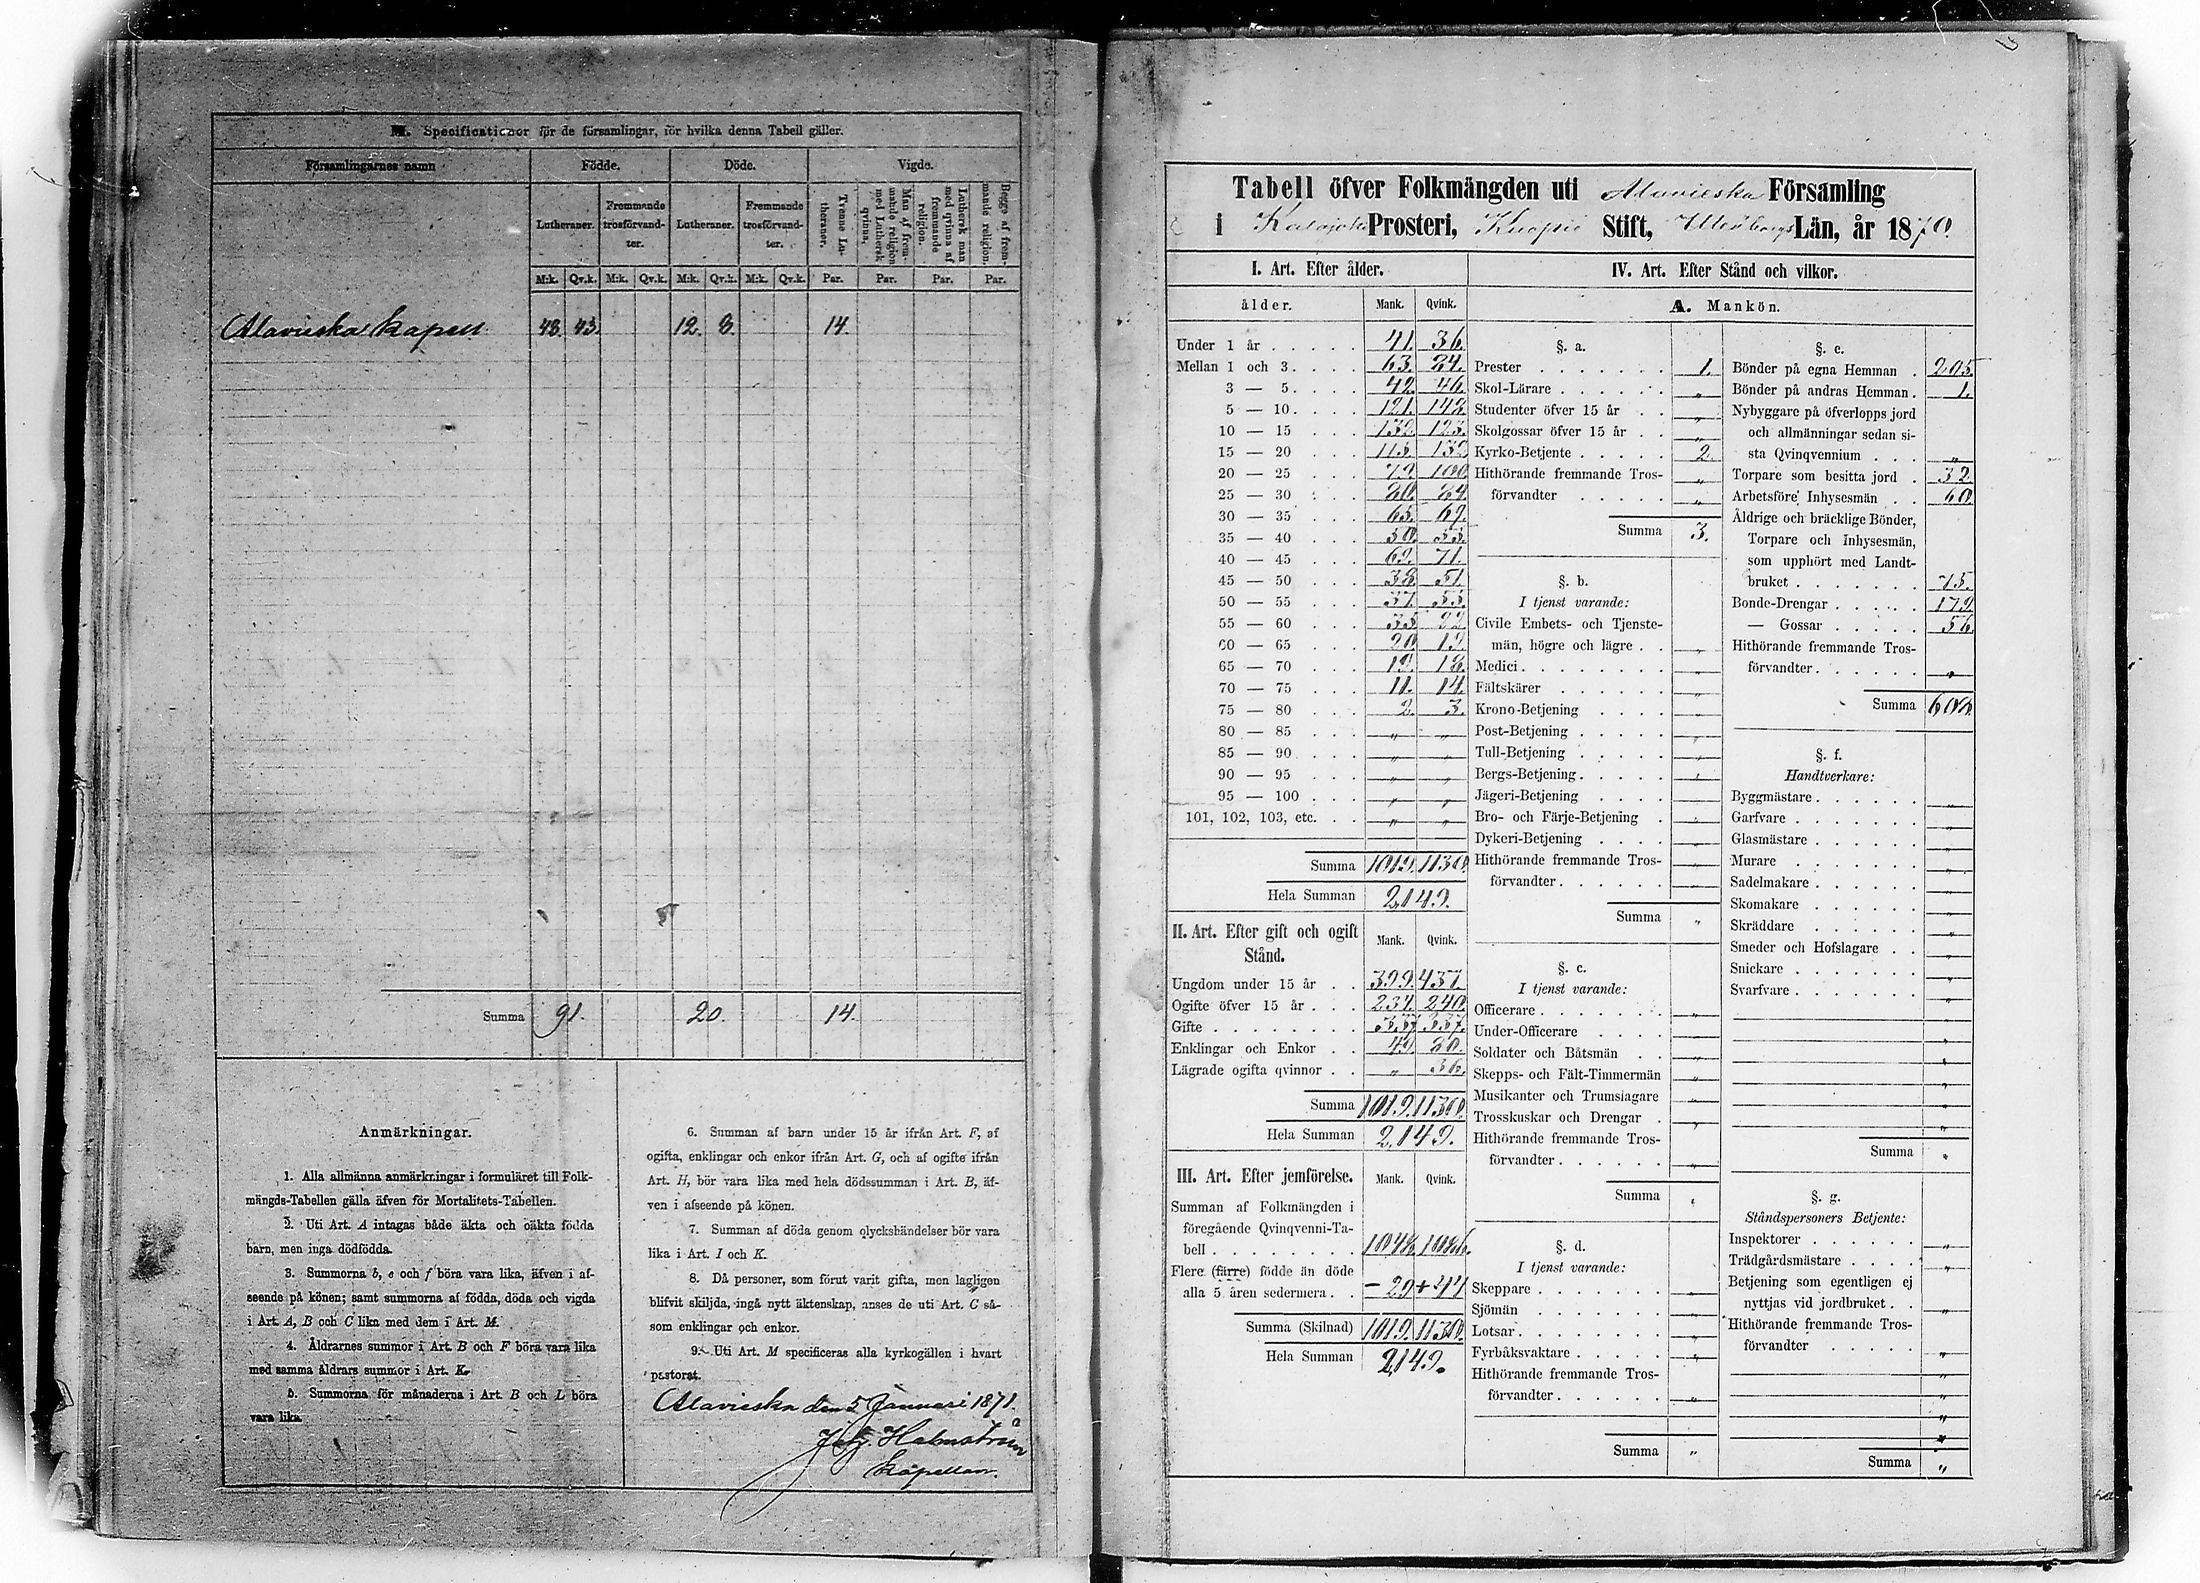 M. Specificationer för de församlingar, för hvilka denna Tabell gäller.
Församlingarnes namn
Födde. Döde. Vigde.
Lutheraner. Fremmande trosförvandter. Lutheraner. Fremmande trosförvandter.
Tvenne Lutheraner.
Man af fremmande religion med Luthersk qvinna.
Luthersk man med qvinna af fremmande religion.
Begge af fremmande religion.
M:k. Qv.k. M:k. Qv.k. M:k. Qv.k. M:k. Qv.k. Par. Par. Par. Par.
Alavieska kapell 48. 43. 12. 8. 14.
Summa 91. 20. 14.
Anmärkningar.
1. Alla allmänna anmärkningar i formuläret till Folk-
mängds-Tabellen gälla äfven för Mortalitets-Tabellen.
2. Uti Art. A intagas både äkta och oäkta födda
barn, men inga dödfödda.
3. Summorna b, e och f böra vara lika, äfven i af-
seende på könen; samt summorna af födda, döda och vigda
i Art. A, B och C lika med dem i Art. M.
4. Åldrarnes summor i Art. B och F böra vara lika
med samma åldrars summor i Art. K.
5. Summorna för månaderna i Art. B och L böra
vara lika.
6. Summan af barn under 15 år ifrån Art. F, af
ogifta, enklingar och enkor ifrån Art. G, och af ogifte ifrån
Art. H, bör vara lika med hela dödssumman i Art. B, äf-
ven i afseende på könen.
7. Summan af döda genom olyckshändelser bör vara
lika i Art. I och K.
8. Då personer, som förut varit gifta, men lagligen
blifvit skiljda, ingå nytt äktenskap, anses de uti Art. C så-
som enklingar och enkor.
9. Uti Art. M specificeras alla kyrkogällen i hvart
pastorat.
Alavieska den 5 Januari 1871.
Holmström
kapellan.
Tabell öfver Folkmängden uti Alavieska Församling
i Kalajoki Prosteri, Kuopio Stift, Uleåborgs Län, år 1870.
I. Art. Efter ålder.
ålder. Mank. Qvink.
Under 1 år 41. 36.
Mellan 1 och 3. 63. 84.
3 — 5. 42. 46.
5 — 10. 121. 148.
10 — 15 132. 123.
15 — 20 113. 132.
20 — 25 79. 100.
25 — 30 80. 84.
30 — 35 65. 69.
35 — 40 50. 53.
40 — 45 62. 71.
45 — 50 38. 51.
50 — 55 37. 55.
55 — 60 35. 22.
60 — 65 20. 19.
65 — 70 19. 18.
70 — 75 11. 14.
75 — 80 2. 3.
80 — 85 „ „
85 — 90 „ „
90 — 95 „ „
95 — 100 „ „
101, 102, 103, etc. „ „
Summa 1019. 1130.
Hela Summan 2,149.
II. Art. Efter gift och ogift Stånd. Mank. Qvink.
Ungdom under 15 år 399. 437.
Ogifte öfver 15 år 234. 240.
Gifte 337. 337.
Enklingar och Enkor 49. 80.
Lägrade ogifta qvinnor „ 36.
Summa 1019. 1130.
Hela Summan 2,149.
III. Art. Efter jemförelse. Mank. Qvink.
Summan af Folkmängden i
föregående Qvinqvenni-Ta-
bell 1048. 1086.
Flere (färre) födde än döde
alla 5 åren sedermera — 29 + 44
Summa (Skilnad) 1019. 1130.
Hela Summan 2,149.
IV. Art. Efter Stånd och vilkor.
A. Mankön.
§. a.
Prester 1.
Skol-Lärare „
Studenter öfver 15 år „
Skolgossar öfver 15 år „
Kyrko-Betjente 2.
Hithörande fremmande Tros-
förvandter „
Summa 3.
§. b.
I tjenst varande:
Civile Embets- och Tjenste-
män, högre och lägre „
Medici „
Fältskärer „
Krono-Betjening „
Post-Betjening „
Tull-Betjening „
Bergs-Betjening „
Jägeri-Betjening „
Bro- och Färje-Betjening „
Dykeri-Betjening „
Hithörande fremmande Tros-
förvandter „
Summa „
§. c.
I tjenst varande:
Officerare „
Under-Officerare „
Soldater och Båtsmän „
Skepps- och Fält-Timmermän „
Musikanter och Trumslagare „
Trosskuskar och Drengar „
Hithörande fremmande Tros-
förvandter „
Summa „
§. d.
I tjenst varande:
Skeppare „
Sjömän „
Lotsar „
Fyrbåksvaktare „
Hithörande fremmande Tros-
förvandter „
Summa „
§. e.
Bönder på egna Hemman 205.
Bönder på andras Hemman 1.
Nybyggare på öfverlopps jord
och allmänningar sedan si-
sta Qvinqvennium „
Torpare som besitta jord 32.
Arbetsföre Inhysesmän 60.
Åldrige och bräcklige Bönder,
Torpare och Inhysesmän,
som upphört med Landt-
bruket 75.
Bonde-Drengar 179.
— Gossar 56.
Hithörande fremmande Tros-
förvandter „
Summa 608.
§. f.
Handtverkare:
Byggmästare „
Garfvare „
Glasmästare „
Murare „
Sadelmakare „
Skomakare „
Skräddare „
Smeder och Hofslagare „
Snickare „
Svarfvare „
Summa „
§. g.
Ståndspersoners Betjente:
Inspektorer „
Trädgårdsmästare „
Betjening som egentligen ej
nyttjas vid jordbruket „
Hithörande fremmande Tros-
förvandter „
Summa „